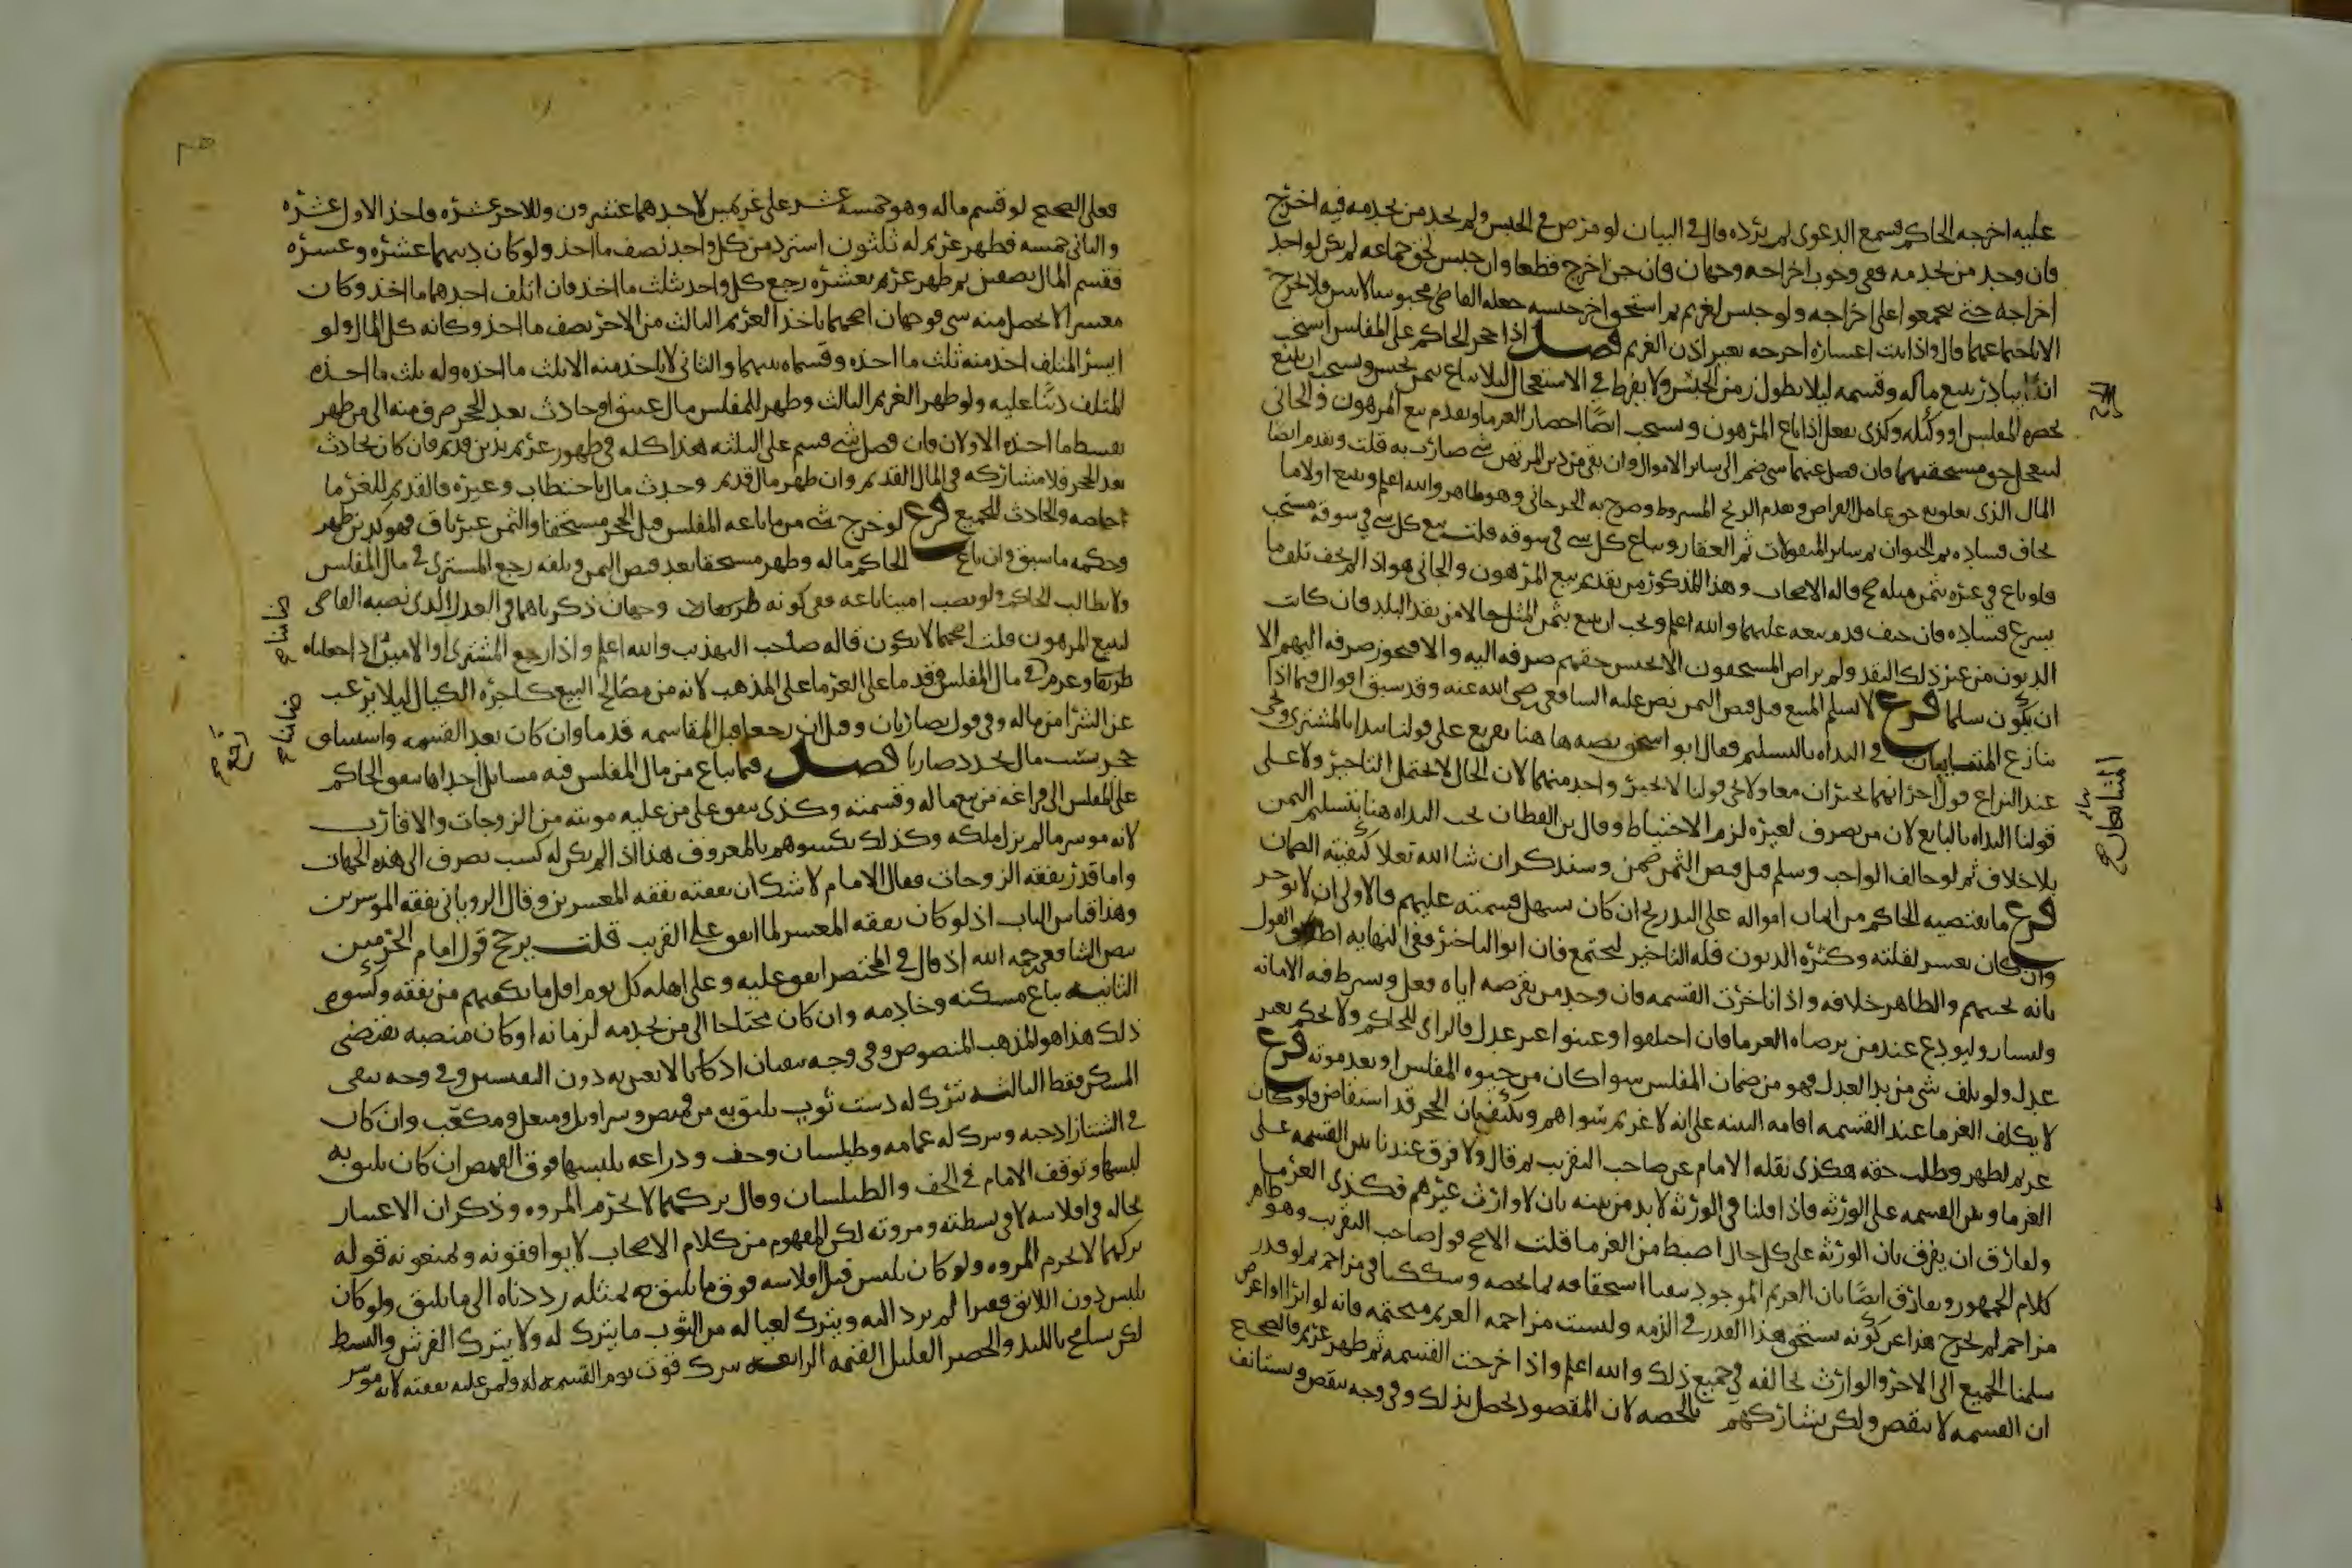 عليه اخرجه الحاكم فسمع الدعوى ثم يرده قال في البيان لو مرض في الحبس ولم يجد من يخدمه فيه اخرج
فان وجد من يخدمه ففي وجوب اخراجه وجهان فان جن اخرج قطعا وان حبس لحق جماعه لم يكن لواحد
اخراجه حتى يجتمعوا على اخراجه ولو حبس لغريم ثم استحق اخر حبسه جعله القاضي محبوسا للاثنين فلا يخرج
الا باجتماعهما قال واذا ثبت اعساره اخرجه بغير اذن الغريم فصل اذا حجر الحاكم على المفلس استحب
ان يبادر ببيع ماله وقسمه ليلا يطول زمن الحبس ولا يفرط في الاستعجال ليلا يباع بثمن بخس ويستحب ان يبيع
بحضره المفلس او وكيله وكذى يفعل اذا باع المرهون ويستحب ايضا احضار الغرما ويقدم بيع المرهون والجاني
ليتعجل حق مستحقيهما فان فضل عنهما شي ضم الى ساير الاموال وان بقي من دين المرتهن شي ضارب به قلت ويقدم ايضا
المال الذي تعلق به حق عامل القراض ويقدم الربح المشروط وصرح به الجرجاني وهو ظاهر والله اعلم ويبيع اولا ما
يخاف فساده ثم الحيوان ثم ساير المنقولات ثم العقار ويباع كل شي في سوقه قلت بيع كل شي في سوقه مستحب
فلو باع في غيره بثمن مثله صح قاله الاصحاب وهذا المذكور من تقديم بيع المرهون والجاني هو اذا لم يخف تلف ما
يسرع فساده فان خيف قدم بيعه عليهما والله اعلم ويجب ان يبيع بثمن المثل حالا من نقد البلد فان كانت
الديون من غير ذلك النقد ولم يرض المستحقون الا بجنس حقهم صرفه اليه والا فيجوز صرفه اليهم الا
ان يكون سلما فرع لا يسلم المبيع قبل قبض الثمن نص عليه الشافعي رضي الله عنه وقد سبق اقوال فيما اذا
تنازع المتبايعان في البداه بالتسليم فقال ابو اسحق نصه ها هنا تفريع على قولنا يبدا بالمشتري ويجي
عند النزاع قول اخر انهما يجبران معا ولا يجي قولنا لا يجبر واحد منهما لان الحال لا يحتمل التاخير ولا على
قولنا البداه بالبايع لان من تصرف لغيره لزمه الاحتياط وقال بن القطان تجب البداه هنا بتسليم الثمن
بلا خلاف ثم لو خالف الواجب وسلم قبل قبض الثمن ضمن وسنذكر ان شا الله تعلا كيفيه الضمان
فرع ما يقبضه الحاكم من اثمان امواله على التدريج ان كان يسهل قسمته عليهم فالاولى ان لا يوخر
وان كان يعسر لقلته وكثره الديون فله التاخير ليجتمع فان ابوا التاخير ففي النهايه اطلاق القول
بانه يجيبهم والظاهر خلافه واذا تاخرت القسمه فان وجد من يقرضه اياه فعل ويشرط فيه الامانه
واليسار وليودع عند من يرضاه الغرما فان اختلفوا او عينوا غير عدل فالراي للحاكم ولا يحكم بغير
عدل ولو تلف شي من يد العدل فهو من ضمان المفلس سوا كان من حيوه المفلس او بعد موته فرع
لا يكلف الغرما عند القسمه اقامه البينه على انه لا غريم سواهم ويكتفي بان الحجر قد استفاض فلو كان
غريم لظهر وطلب حقه هكذى نقله الامام عن صاحب التقريب ثم قال ولا فرق عندنا بين القسمه على
الغرما وبين القسمه على الورثه فاذا قلنا في الورثه لا بد من بينه بان لا وارث غيرهم فكذى الغرما
ولفارق ان يفرق بان الورثه على كل حال اضبط من الغرما قلت الاصح قول صاحب التقريب وهو ظاهر
كلام الجمهور ويفارق ايضا بان الغريم الموجود تيقنا استحقاقه لما يخصه وشككنا في مزاحم ثم لو قدر
مزاحم لم يخرج هذا عن كونه يستحق هذا القدر في الذمه وليست مزاحمه الغريم متحتمه فانه لو ابرا او اعرض
سلمنا الجميع الى الاخر والوارث يخالفه في جميع ذلك والله اعلم واذا خرجت القسمه ثم ظهر غريم فالصحيح
ان القسمه لا تنقض ولكن يشاركهم بالحصه لان المقصود يحصل بذلك وفي وجه تنقض وتستانف
فعلى الصحيح لو قسم ماله وهو خمسه عشر على غريمين لاحدهما عشرون وللاخر عشره فاخذ الاول عشره
والثاني خمسه فظهر غريم له ثلثون استرد من كل واحد نصف ما اخذ ولو كان دينهما عشره وعشره
فقسم المال نصفين ثم ظهر غريم بعشره رجع كل واحد ثلث ما اخذ فان اتلف احدهما ما اخذ وكان
معسرا لا يحصل منه شي فوجهان اصحهما ياخذ الغريم الثالث من الاخر نصف ما اخذ وكانه كل المال ولو
ايسر المتلف اخذ منه ثلث ما اخذه وقسماه بينهما والثاني لا ياخذ منه الا ثلث ما اخذه وله ثلث ما اخذه
المتلف دينا عليه ولو ظهر الغريم الثالث وظهر للمفلس مال عتيق او حادث بعد الحجر صرف منه الى من ظهر
بقسط ما اخذه الاولان فان فضل شي قسم على الثلثه هذا كله في ظهور غريم بدين قديم فان كان بحادث
بعد الحجر فلا مشاركه في المال القديم وان ظهر مال قديم وحدث مال باحتطاب وغيره فالقديم للغرما
خاصه والحادث للجميع فرع لو خرج شي من ما باعه المفلس قبل الحجر مستحقا والثمن غير باق فهو كدين ظهر
وحكمه ما سبق وان باع الحاكم ماله وظهر مستحقا بعد قبض الثمن وتلفه رجع المشتري في مال المفلس
ولا يطالب الحاكم ولو نصب امينا باعه ففي كونه طريقا وجهان ذكرناهما في العدل الذي نصبه القاضي
لبيع المرهون قلت اصحهما لا يكون قاله صاحب التهذيب والله اعلم واذا رجع المشتري او الامين اذا جعلناه
طريقا وغرم في مال المفلس قدما على الغرما على المذهب لانه من مصالح البيع كاجره الكيال ليلا يرغب
عن الشرا من ماله وفي قول يضاربان وقيل ان رجعا قبل المقاسمه قدما وان كان بعد القسمه واستيناف
حجر بسبب مال تجدد ضاربا فصل فيما يباع من مال المفلس فيه مسايل احداها ينفق الحاكم
على المفلس الى فراغه من بيع ماله وقسمته وكذى ينفق على من عليه موونته من الزوجات والاقارب
لانه موسر ما لم يزل ملكه وكذلك يكسوهم بالمعروف هذا اذا لم يكن له كسب يصرف الى هذه الجهات
واما قدر نفقه الزوجات فقال الامام لا شك ان نفقته نفقه المعسرين وقال الروياني نفقه الموسرين
وهذا قياس الباب اذ لو كان نفقه المعسر لما انفق على القريب قلت يرجح قول امام الحرمين
بنص الشافعي رحمه الله اذ قال في المختصر انفق عليه وعلى اهله كل يوم اقل ما يكفيهم من نفقه وكسوه
الثانيه يباع مسكنه وخادمه وان كان محتاجا الى من يخدمه لزمانه او كان منصبه يقتضي
ذلك هذا هو المذهب المنصوص وفي وجه يبقيان اذا كانا لا يقين به دون النفيسين وفي وجه يبقى
المسكن فقط الثالثه يترك له دست ثوب يليق به من قميص وسراويل ومنعل ومكعب وان كان
في الشتا زاد جبه ويترك له عمامه وطيلسان وخف ودراعه يلبسها فوق القميص ان كان يليق به
لبسها وتوقف الامام في الخف والطيلسان وقال تركهما لا يخرم المروه وذكر ان الاعتبار
بحاله في افلاسه لا في بسطته ومروته لكن المفهوم من كلام الاصحاب لا يوافقونه ويمنعونه قوله
تركهما لا يخرم المروه ولو كان يلبس قبل افلاسه فوق ما يليق به بمثله رددناه الى ما يليق ولو كان
يلبس دون اللايق تقتيرا لم يرد اليه ويترك لعياله من الثوب ما يترك له ولا يترك الفرش والبسط
لكن يسامح باللبد والحصير القليل القيمه الرابعه يترك قوت يوم القسمه له ولمن عليه نفقته لانه موسر